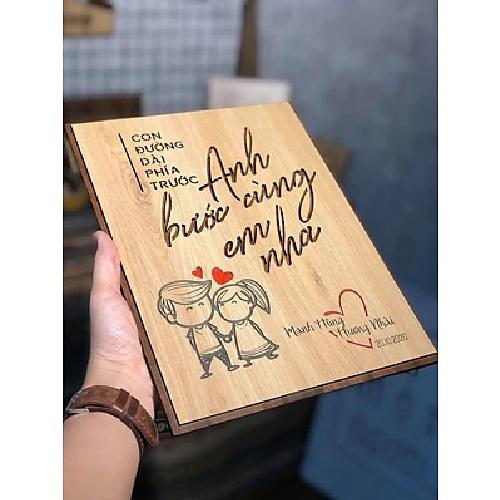 CON
ĐƯỜNG
DÀI
PHÍA
TRƯỚC
Anh
bước cùng
em
nha
Mạnh Hùng
Hương Nhài
20.10.2020